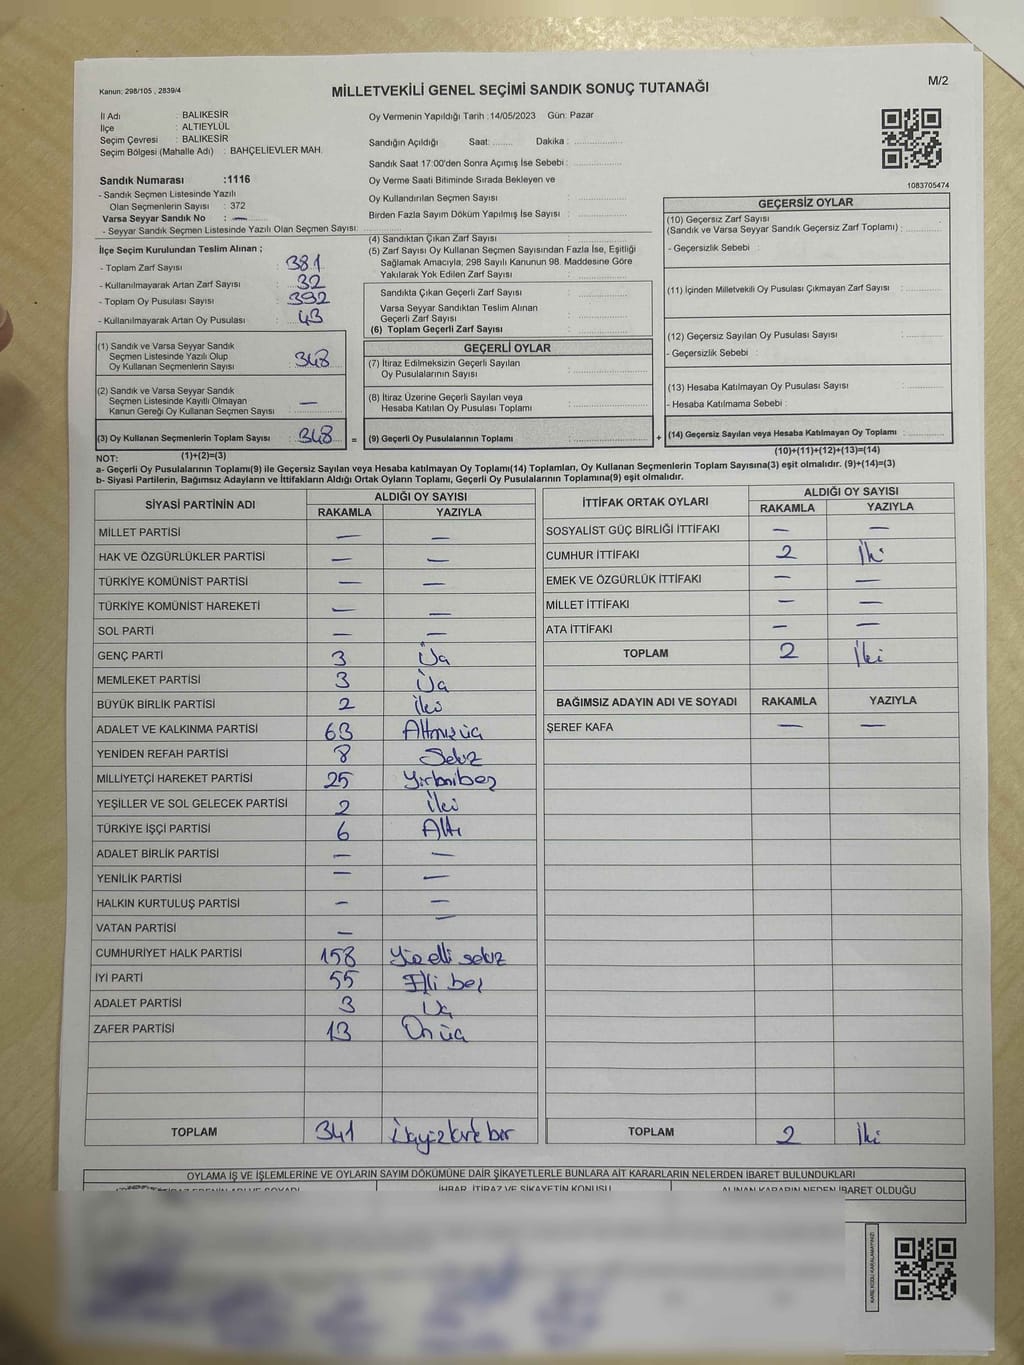 Kanun: 298/105 , 2839/4
MİLLETVEKİLİ GENEL SEÇİMİ SANDIK SONUÇ TUTANAĞI
M/2
İl Adı : BALIKESİR
İlçe : ALTIEYLÜL
Seçim Çevresi : BALIKESİR
Seçim Bölgesi (Mahalle Adı) : BAHÇELİEVLER MAH.
Oy Vermenin Yapıldığı Tarih :14/05/2023 Gün: Pazar
Sandığın Açıldığı Saat: ........ Dakika : ....................
Sandık Saat 17:00'den Sonra Açımış İse Sebebi : ....................
Oy Verme Saati Bitiminde Sırada Bekleyen ve
Oy Kullandırılan Seçmen Sayısı : ....................
Birden Fazla Sayım Döküm Yapılmış İse Sayısı : ....................
1083705474
Sandık Numarası :1116
- Sandık Seçmen Listesinde Yazılı
Olan Seçmenlerin Sayısı : 372
Varsa Seyyar Sandık No : —
- Seyyar Sandık Seçmen Listesinde Yazılı Olan Seçmen Sayısı: ....................
İlçe Seçim Kurulundan Teslim Alınan ;
- Toplam Zarf Sayısı : 381
- Kullanılmayarak Artan Zarf Sayısı : 32
- Toplam Oy Pusulası Sayısı : 392
- Kullanılmayarak Artan Oy Pusulası : 43
(1) Sandık ve Varsa Seyyar Sandık
Seçmen Listesinde Yazılı Olup
Oy Kullanan Seçmenlerin Sayısı : 348
(2) Sandık ve Varsa Seyyar Sandık
Seçmen Listesinde Kayıtlı Olmayan
Kanun Gereği Oy Kullanan Seçmen Sayısı : —
(3) Oy Kullanan Seçmenlerin Toplam Sayısı : 348 =
(1)+(2)=(3)
(4) Sandıktan Çıkan Zarf Sayısı : ....................
(5) Zarf Sayısı Oy Kullanan Seçmen Sayısından Fazla İse, Eşitliği
Sağlamak Amacıyla, 298 Sayılı Kanunun 98. Maddesine Göre
Yakılarak Yok Edilen Zarf Sayısı : ....................
Sandıkta Çıkan Geçerli Zarf Sayısı : ....................
Varsa Seyyar Sandıktan Teslim Alınan
Geçerli Zarf Sayısı : ....................
(6) Toplam Geçerli Zarf Sayısı : ....................
GEÇERLİ OYLAR
(7) İtiraz Edilmeksizin Geçerli Sayılan
Oy Pusulalarının Sayısı : ....................
(8) İtiraz Üzerine Geçerli Sayılan veya
Hesaba Katılan Oy Pusulası Toplamı : ....................
(9) Geçerli Oy Pusulalarının Toplamı : .................... +
GEÇERSİZ OYLAR
(10) Geçersiz Zarf Sayısı
(Sandık ve Varsa Seyyar Sandık Geçersiz Zarf Toplamı) : ............
- Geçersizlik Sebebi :
(11) İçinden Milletvekili Oy Pusulası Çıkmayan Zarf Sayısı : ............
(12) Geçersiz Sayılan Oy Pusulası Sayısı : ............
- Geçersizlik Sebebi :
(13) Hesaba Katılmayan Oy Pusulası Sayısı : ............
- Hesaba Katılmama Sebebi :
(14) Geçersiz Sayılan veya Hesaba Katılmayan Oy Toplamı : ............
(10)+(11)+(12)+(13)=(14)
NOT:
a- Geçerli Oy Pusulalarının Toplamı(9) ile Geçersiz Sayılan veya Hesaba katılmayan Oy Toplamı(14) Toplamları, Oy Kullanan Seçmenlerin Toplam Sayısına(3) eşit olmalıdır. (9)+(14)=(3)
b- Siyasi Partilerin, Bağımsız Adayların ve İttifakların Aldığı Ortak Oyların Toplamı, Geçerli Oy Pusulalarının Toplamına(9) eşit olmalıdır.
SİYASİ PARTİNİN ADI ALDIĞI OY SAYISI
RAKAMLA YAZIYLA
MİLLET PARTİSİ — —
HAK VE ÖZGÜRLÜKLER PARTİSİ — —
TÜRKİYE KOMÜNİST PARTİSİ — —
TÜRKİYE KOMÜNİST HAREKETİ — —
SOL PARTİ — —
GENÇ PARTİ 3 Üç
MEMLEKET PARTİSİ 3 Üç
BÜYÜK BİRLİK PARTİSİ 2 İki
ADALET VE KALKINMA PARTİSİ 63 Altmışüç
YENİDEN REFAH PARTİSİ 8 Sekiz
MİLLİYETÇİ HAREKET PARTİSİ 25 Yirmibeş
YEŞİLLER VE SOL GELECEK PARTİSİ 2 İki
TÜRKİYE İŞÇİ PARTİSİ 6 Altı
ADALET BİRLİK PARTİSİ — —
YENİLİK PARTİSİ — —
HALKIN KURTULUŞ PARTİSİ — —
VATAN PARTİSİ — —
CUMHURİYET HALK PARTİSİ 158 Yüz elli sekiz
İYİ PARTİ 55 Elli beş
ADALET PARTİSİ 3 Üç
ZAFER PARTİSİ 13 On üç
TOPLAM 341 Üçyüz kırk bir
İTTİFAK ORTAK OYLARI ALDIĞI OY SAYISI
RAKAMLA YAZIYLA
SOSYALİST GÜÇ BİRLİĞİ İTTİFAKI — —
CUMHUR İTTİFAKI 2 İki
EMEK VE ÖZGÜRLÜK İTTİFAKI — —
MİLLET İTTİFAKI — —
ATA İTTİFAKI — —
TOPLAM 2 İki
BAĞIMSIZ ADAYIN ADI VE SOYADI RAKAMLA YAZIYLA
ŞEREF KAFA — —
TOPLAM 2 İki
OYLAMA İŞ VE İŞLEMLERİNE VE OYLARIN SAYIM DÖKÜMÜNE DAİR ŞİKAYETLERLE BUNLARA AİT KARARLARIN NELERDEN İBARET BULUNDUKLARI
İHBAR, İTİRAZ VE ŞİKAYETİN KONUSU
ALINAN KARARIN NEDEN İBARET OLDUĞU
KARE KODU KARALAMAYINIZ!